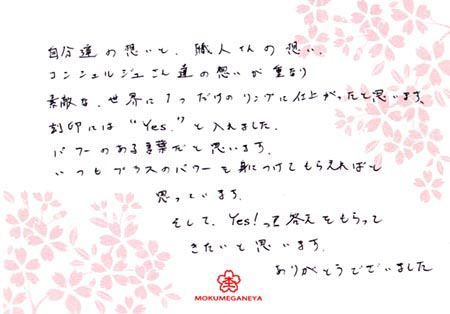 自分達の想いと、職人さんの想い、
コンシェルジュさん達の想いが重なり
素敵な、世界に1つだけのリングに仕上がったと思います。
刻印には“Yes.”と入れました。
パワーのある言葉だと思います。
いつもプラスのパワーを身につけてもらえればと
思っています。
そして、Yes!って答えをもらって
きたいと思います。
ありがとうございました
MOKUMEGANEYA